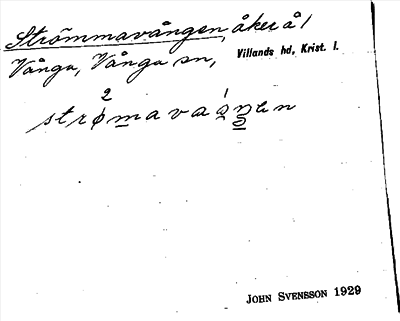 Strömmavången, åker å 1
Vånga, Vånga sn, Villands hd, Krist. l.
JOHN SVENSSON 1929